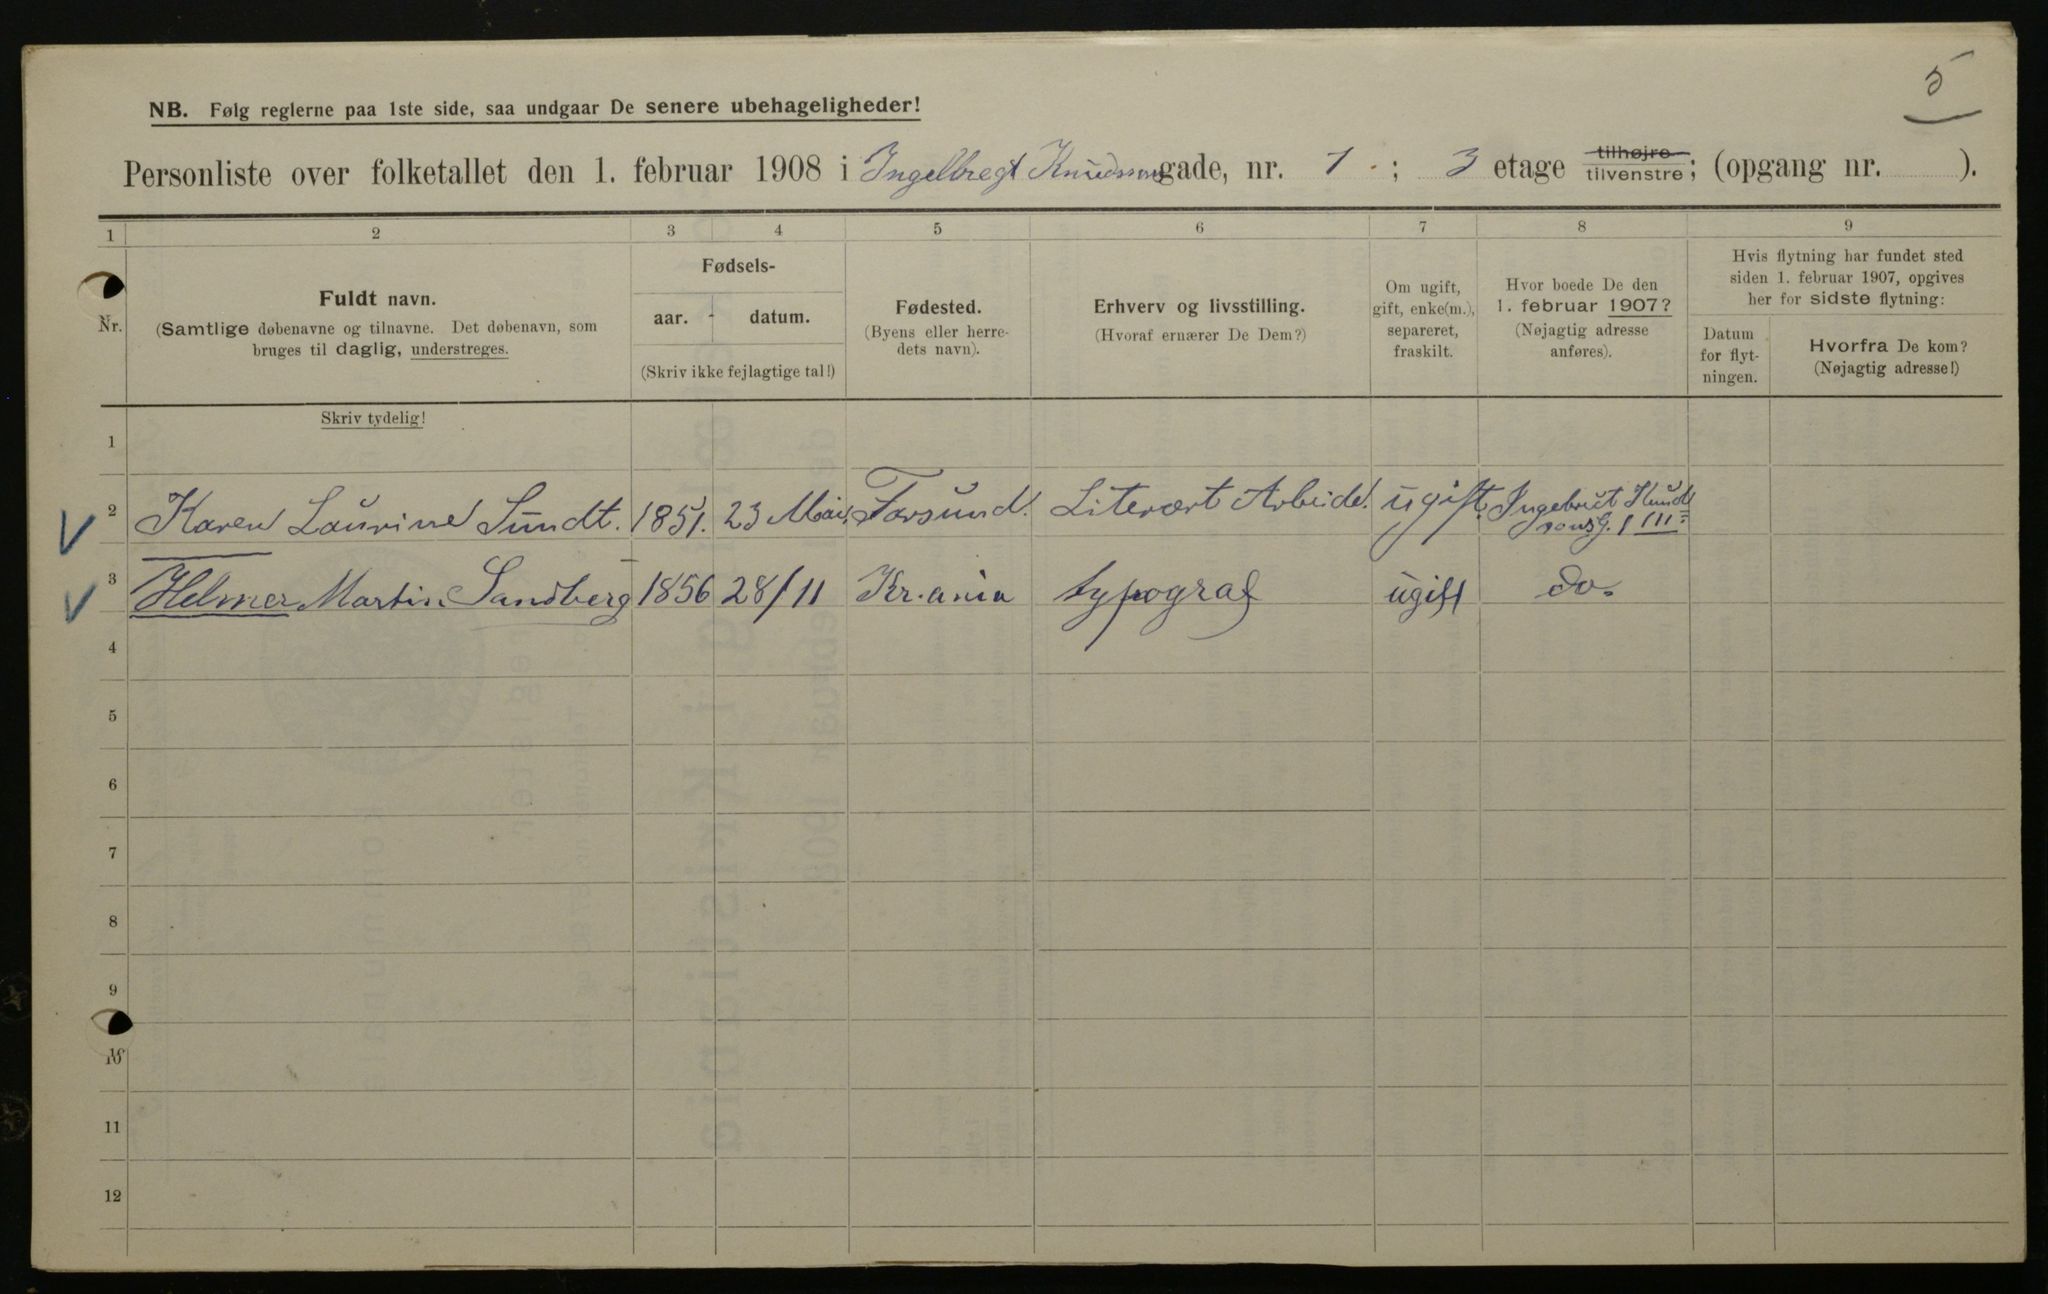 5
NB. Følg reglerne paa 1ste side, saa undgaar De senere ubehageligheder!
Personliste over folketallet den 1. februar 1908 i Ingelbregt Knudsens gade, nr. 1 ; 3 etage tilhøjre tilvenstre; (opgang nr. ).
1 2 3 4 5 6 7 8 9
Nr.
Fuldt navn.
(Samtlige døbenavne og tilnavne. Det døbenavn, som
bruges til daglig, understreges.
Fødsels-
aar. - datum.
(Skriv ikke fejlagtige tal!)
Fødested.
(Byens eller herre-
dets navn).
Erhverv og livsstilling.
(Hvoraf ernærer De Dem?)
Om ugift,
gift, enke(m.),
separeret,
fraskilt.
Hvor boede De den
1. februar 1907?
(Nøjagtig adresse
anføres).
Hvis flytning har fundet sted
siden 1. februar 1907, opgives
her for sidste flytning:
Datum
for flyt-
ningen.
Hvorfra De kom?
(Nøjagtig adresse!)
Skriv tydelig!
1
2 Karen Laurine Sundt. 1851. 23 Mai. Farsund. Literært Arbeide. ugift. Ingebrigt Knud
sonsG. 1 III
3 Helmer Martin Sandberg 1856 28/11 Kr.ania typograf ugift do.
4
5
6
7
8
9
10
11
12